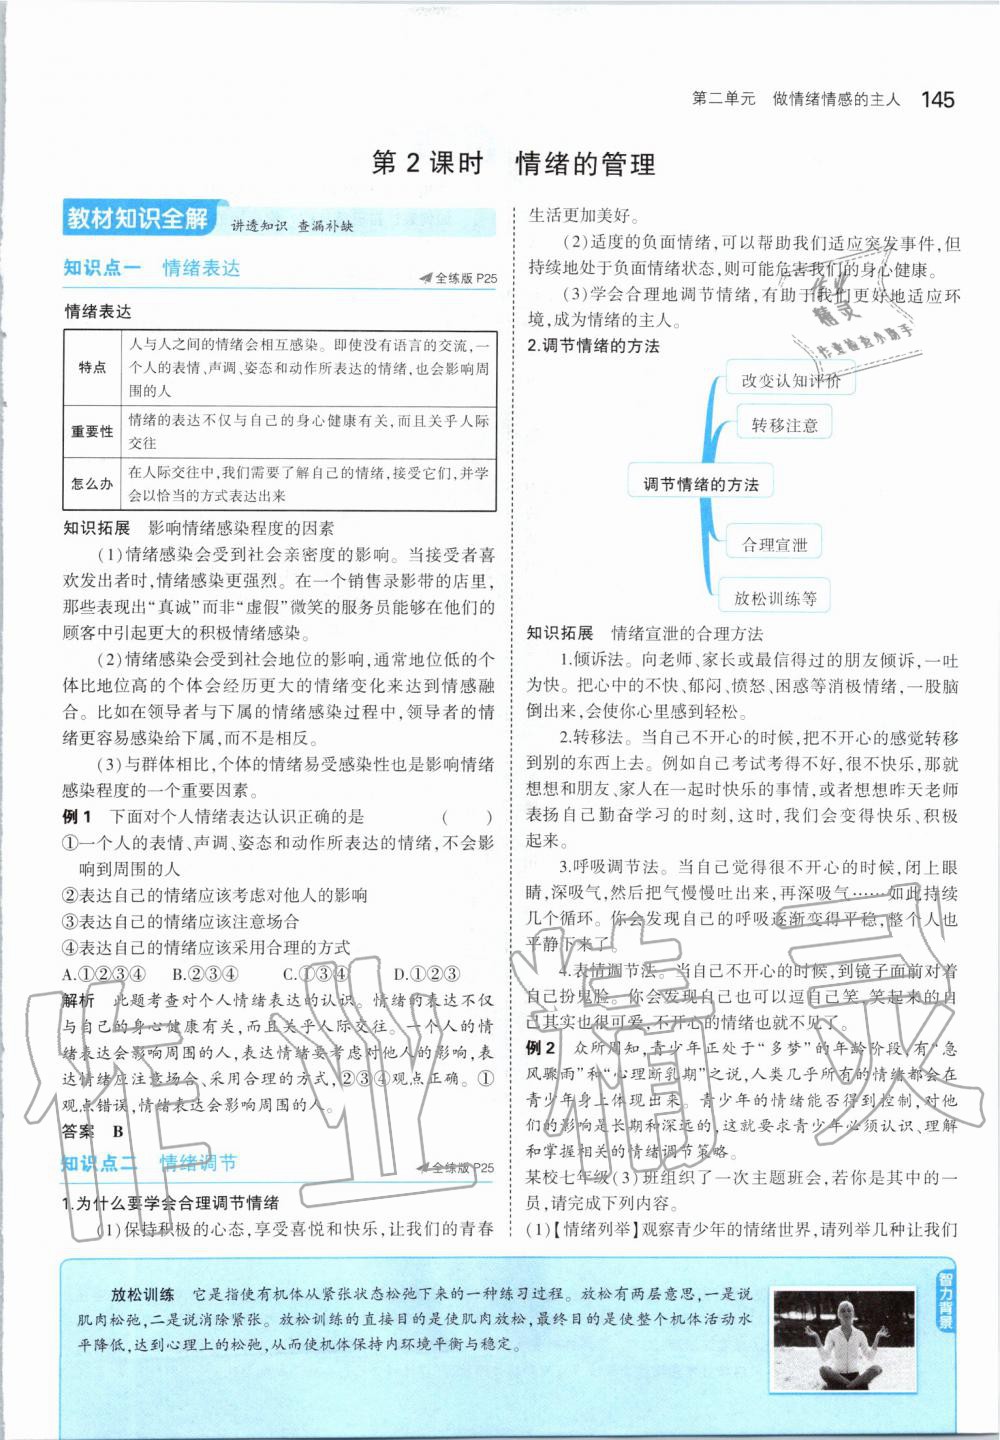 第二单元　做情绪情感的主人　145
第 2 课时　情绪的管理
教材知识全解　讲透知识 查漏补缺
知识点一　情绪表达　全练版 P25
情绪表达
特点　人与人之间的情绪会相互感染。即使没有语言的交流,一
个人的表情、声调、姿态和动作所表达的情绪,也会影响周
围的人
重要性　情绪的表达不仅与自己的身心健康有关,而且关乎人际
交往
怎么办　在人际交往中,我们需要了解自己的情绪,接受它们,并学
会以恰当的方式表达出来
知识拓展　影响情绪感染程度的因素
(1)情绪感染会受到社会亲密度的影响。当接受者喜
欢发出者时,情绪感染更强烈。在一个销售录影带的店里,
那些表现出“真诚”而非“虚假”微笑的服务员能够在他们的
顾客中引起更大的积极情绪感染。
(2)情绪感染会受到社会地位的影响,通常地位低的个
体比地位高的个体会经历更大的情绪变化来达到情感融
合。比如在领导者与下属的情绪感染过程中,领导者的情
绪更容易感染给下属,而不是相反。
(3)与群体相比,个体的情绪易受感染性也是影响情绪
感染程度的一个重要因素。
例 1　下面对个人情绪表达认识正确的是　(　　)
①一个人的表情、声调、姿态和动作所表达的情绪,不会影
响到周围的人
②表达自己的情绪应该考虑对他人的影响
③表达自己的情绪应该注意场合
④表达自己的情绪应该采用合理的方式
A.①②③④　B.②③④　C.①③④　D.①②③
解析　此题考查对个人情绪表达的认识。情绪的表达不仅
与自己的身心健康有关,而且关乎人际交往。一个人的情
绪表达会影响周围的人,表达情绪要考虑对他人的影响,表
达情绪应注意场合、采用合理的方式,②③④观点正确。①
观点错误,情绪表达会影响周围的人。
答案　B
知识点二　情绪调节　全练版 P25
1.为什么要学会合理调节情绪
(1)保持积极的心态,享受喜悦和快乐,让我们的青春
生活更加美好。
(2)适度的负面情绪,可以帮助我们适应突发事件,但
持续地处于负面情绪状态,则可能危害我们的身心健康。
(3)学会合理地调节情绪,有助于我们更好地适应环
境,成为情绪的主人。
2.调节情绪的方法
改变认知评价
转移注意
调节情绪的方法
合理宣泄
放松训练等
知识拓展　情绪宣泄的合理方法
1.倾诉法。向老师、家长或最信得过的朋友倾诉,一吐
为快。把心中的不快、郁闷、愤怒、困惑等消极情绪,一股脑
倒出来,会使你心里感到轻松。
2.转移法。当自己不开心的时候,把不开心的感觉转移
到别的东西上去。例如自己考试考得不好,很不快乐,那就
想想和朋友、家人在一起时快乐的事情,或者想想昨天老师
表扬自己勤奋学习的时刻,这时,我们会变得快乐、积极
起来。
3.呼吸调节法。当自己觉得很不开心的时候,闭上眼
睛,深吸气,然后把气慢慢吐出来,再深吸气……如此持续
几个循环。你会发现自己的呼吸逐渐变得平稳,整个人也
平静下来了。
4.表情调节法。当自己不开心的时候,到镜子面前对着
自己扮鬼脸。你会发现自己也可以逗自己笑,笑起来的自
己其实也很可爱,不开心的情绪也就不见了。
例 2　众所周知,青少年正处于“多梦”的年龄阶段,有“急
风骤雨”和“心理断乳期”之说,人类几乎所有的情绪都会在
青少年身上体现出来。青少年的情绪能否得到控制,对他
们的影响是长期和深远的,这就要求青少年必须认识、理解
和掌握相关的情绪调节策略。
某校七年级(3)班组织了一次主题班会,若你是其中的一
员,请完成下列内容。
(1)【情绪列举】观察青少年的情绪世界,请列举几种让我们
放松训练　它是指使有机体从紧张状态松弛下来的一种练习过程。放松有两层意思,一是说
肌肉松弛,二是说消除紧张。放松训练的直接目的是使肌肉放松,最终目的是使整个机体活动水
平降低,达到心理上的松弛,从而使机体保持内环境平衡与稳定。
智力背景
作业精灵
作业
精灵
作业检查小助手